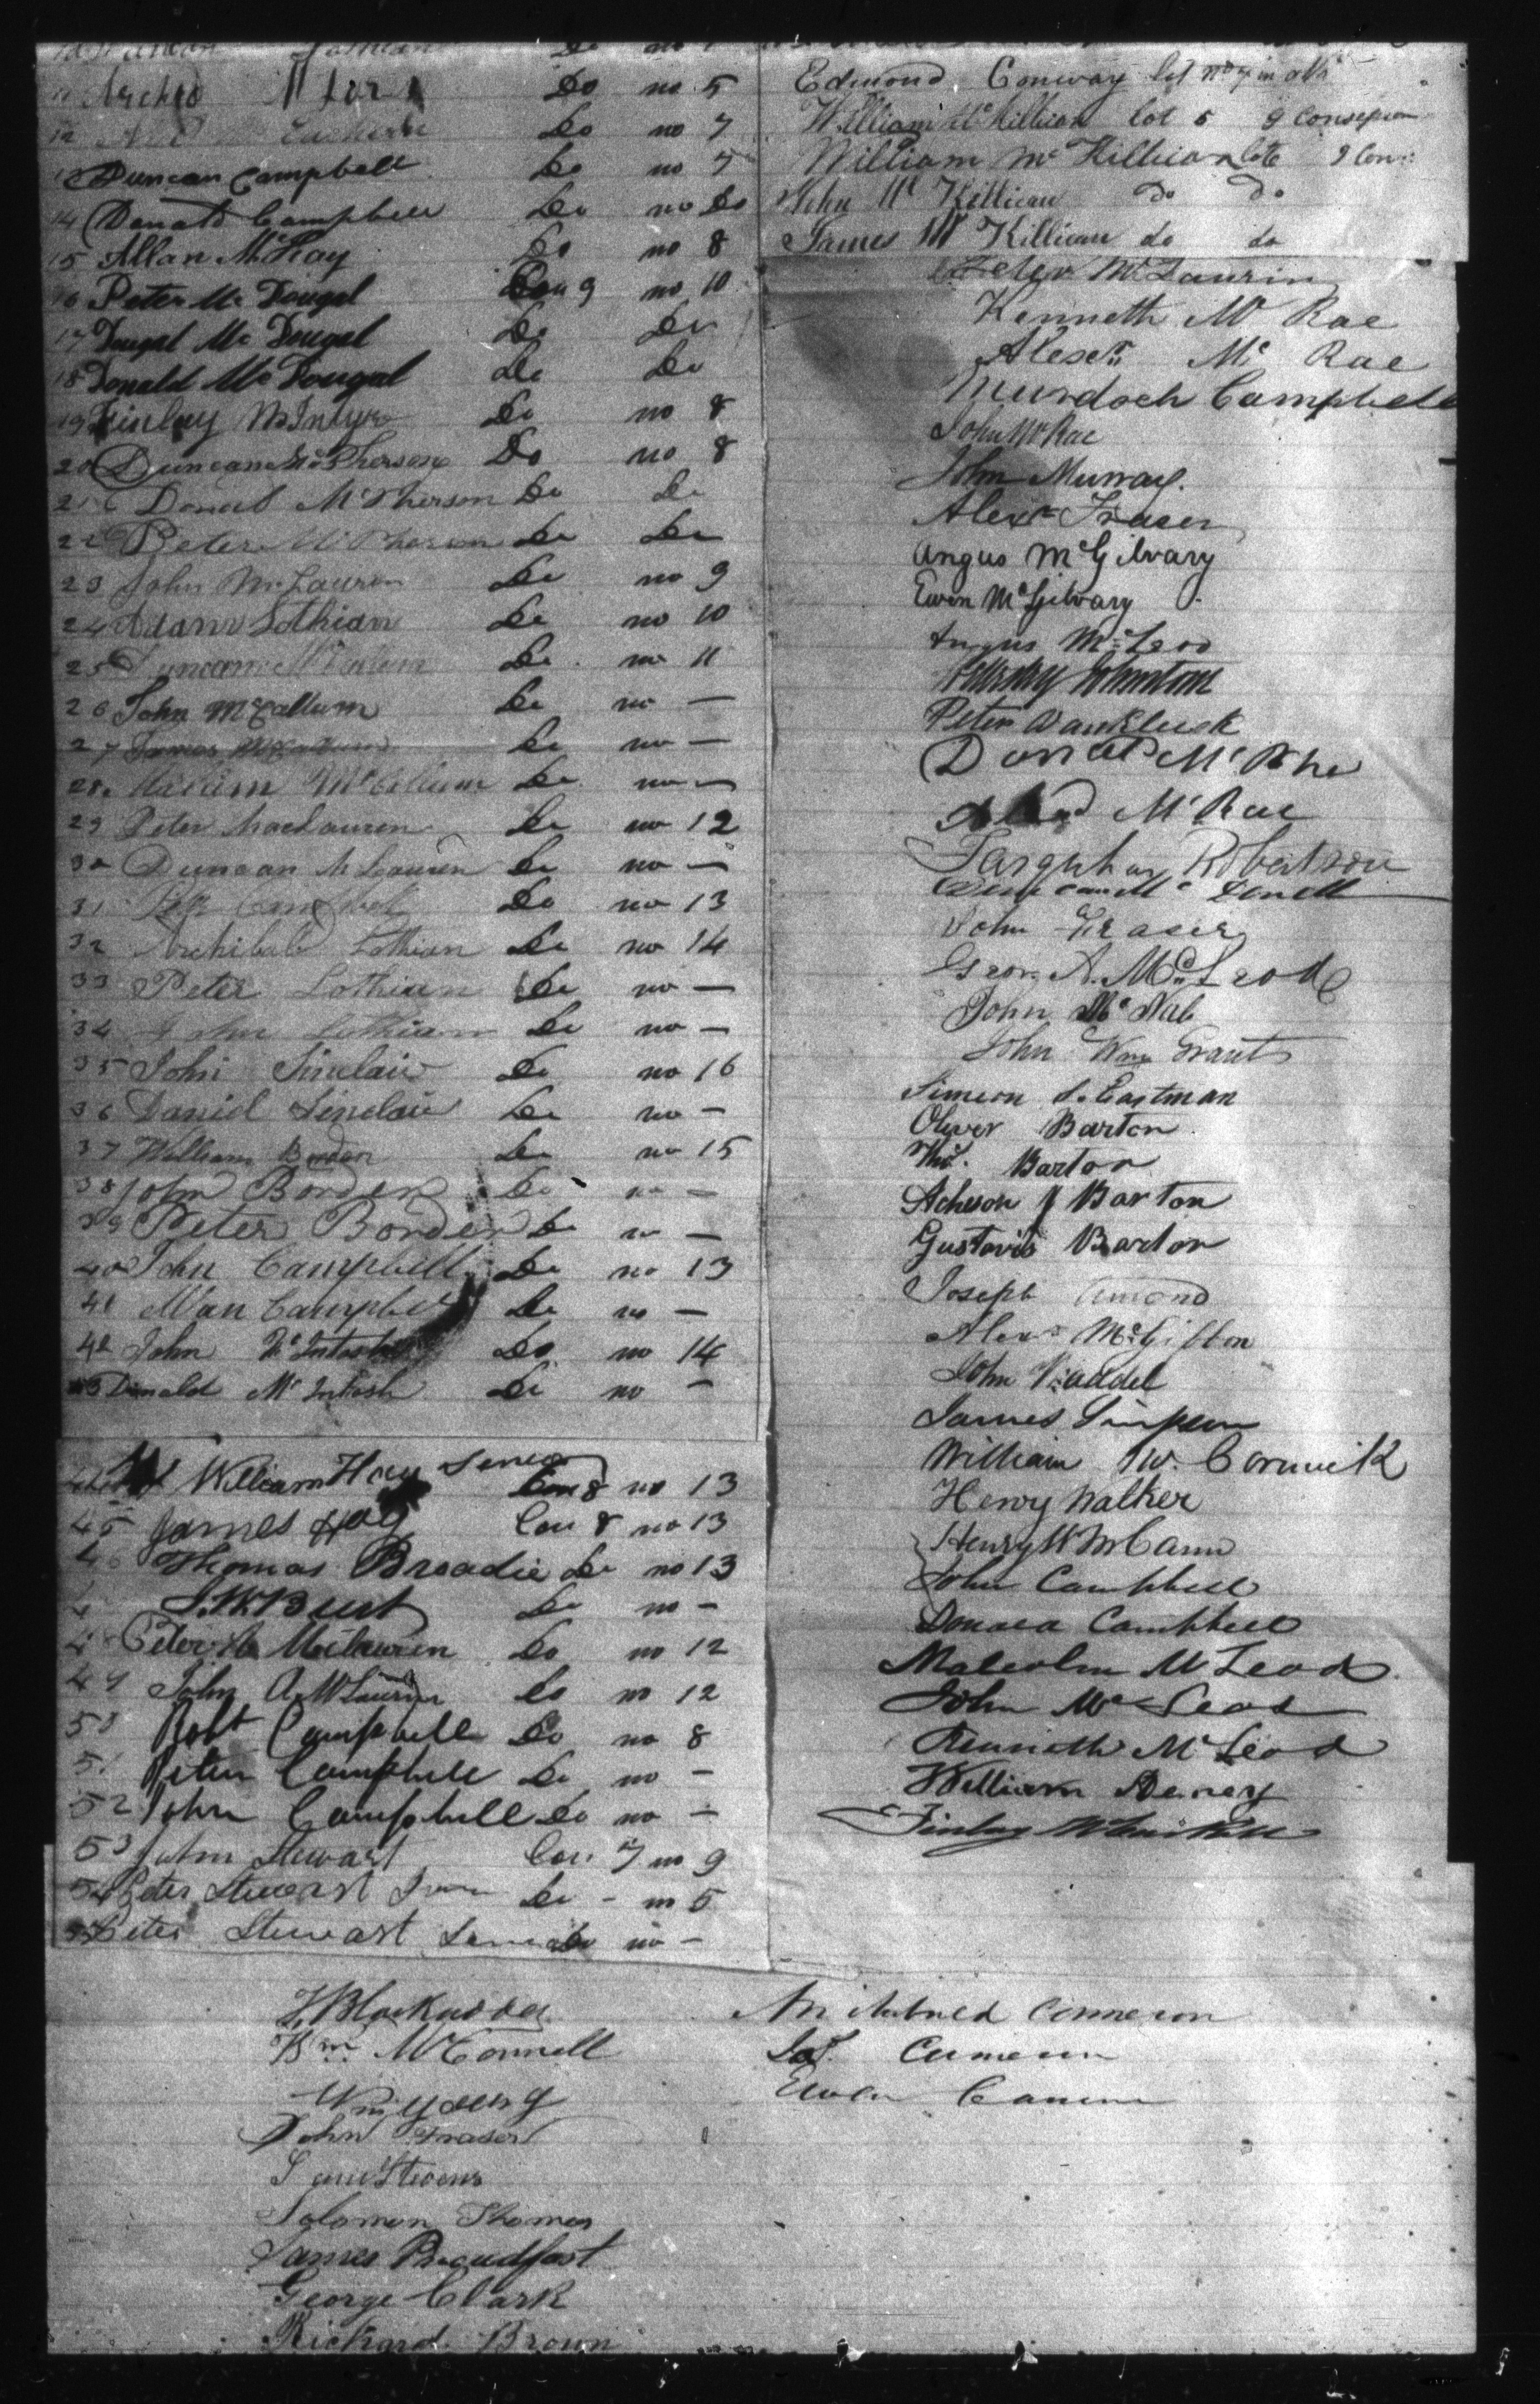 Do no
11 Arch'd Do no 5
12 Do no 7
13 Duncan Campbell Do no 7
14 Donald Campbell Do no Do
15 Allan McKay Do no 8
16 Peter Mc Dougal Con 9 no 10
17 Dougal Mc Dougal Do Do
18 Donald Mc Dougal Do Do
19 Finlay McIntyre Do no 8
20 Duncan McPherson Do no 8
21 Donald McPherson Do Do
22 Peter McPherson Do Do
23 John McLauren Do no 9
24 Adam Lothian Do no 10
25 Duncan Do no 11
26 John McCallum Do no —
27 James McCallum Do no —
28 McCallum Do no —
29 Peter MacLauren Do no 12
30 Duncan McLauren Do no —
31 Campbel Do no 13
32 Archibald Lothian Do no 14
33 Peter Lothian Do no —
34 John Lothian Do no —
35 John Sinclair Do no 16
36 Daniel Sinclair Do no —
37 William Borden Do no 15
38 John Borden Do no —
39 Peter Borden Do no —
40 John Campbell Do no 13
41 Allan Campbell Do no —
42 John McIntosh Do no 14
43 Donald McIntosh Do no —
44 William Hay Senior Con 8 no 13
45 James Hay Con 8 no 13
46 Thomas Broadie Do no 13
4 Burt Do no —
4 Peter McLauren Do no 12
49 John A. McLaurin Do no 12
50 Robt Campbell Do no 8
51 Peter Campbell Do no —
52 John Campbell Do no —
53 John Stewart Con 7 no 9
54 Peter Stewart Junr Do - no 5
55 Peter Stewart Senior Do no —
Edmond Conway lot no 7 in
William McKillican lot 5 9 Consepion
William McKillican lote 9 Con
John McKillican Do Do
James McKillican do do
Peter McLaurin
Kenneth McRae
Alexr McRae
Murdoch Campbell
John McRae
John Murray.
Alexr Fraser
Angus McGilvary
Ewen McGilvary
Angus McLeod
Johnston
Peter Vankleek
Donald
McRae
Farquhar Robertson
Duncan McDonell
John Fraser
Geor. A. McLeod
John McNab
John Wm Grant
Simeon S. Eastman
Oliver Barton
Thos. Barton
Acheson Barton
Gustavis Barton
Joseph Amond
Alexr McGibbon
John Waddel
James Simpson
William W. Cormick
Henry Walker
Henry W McCann
John Campbell
Donald Campbell
Malcolm McLeod
John McLeod
Kenneth McLeod
William
Finlay
Blackadder
Wm McConnell
Wm Young
John Fraser
Stevens
Solomon Thomas
James Proudfoot
George Clark
Richard Brown
Archibald Cameron
Jas. Cameron
Ewen Cameron